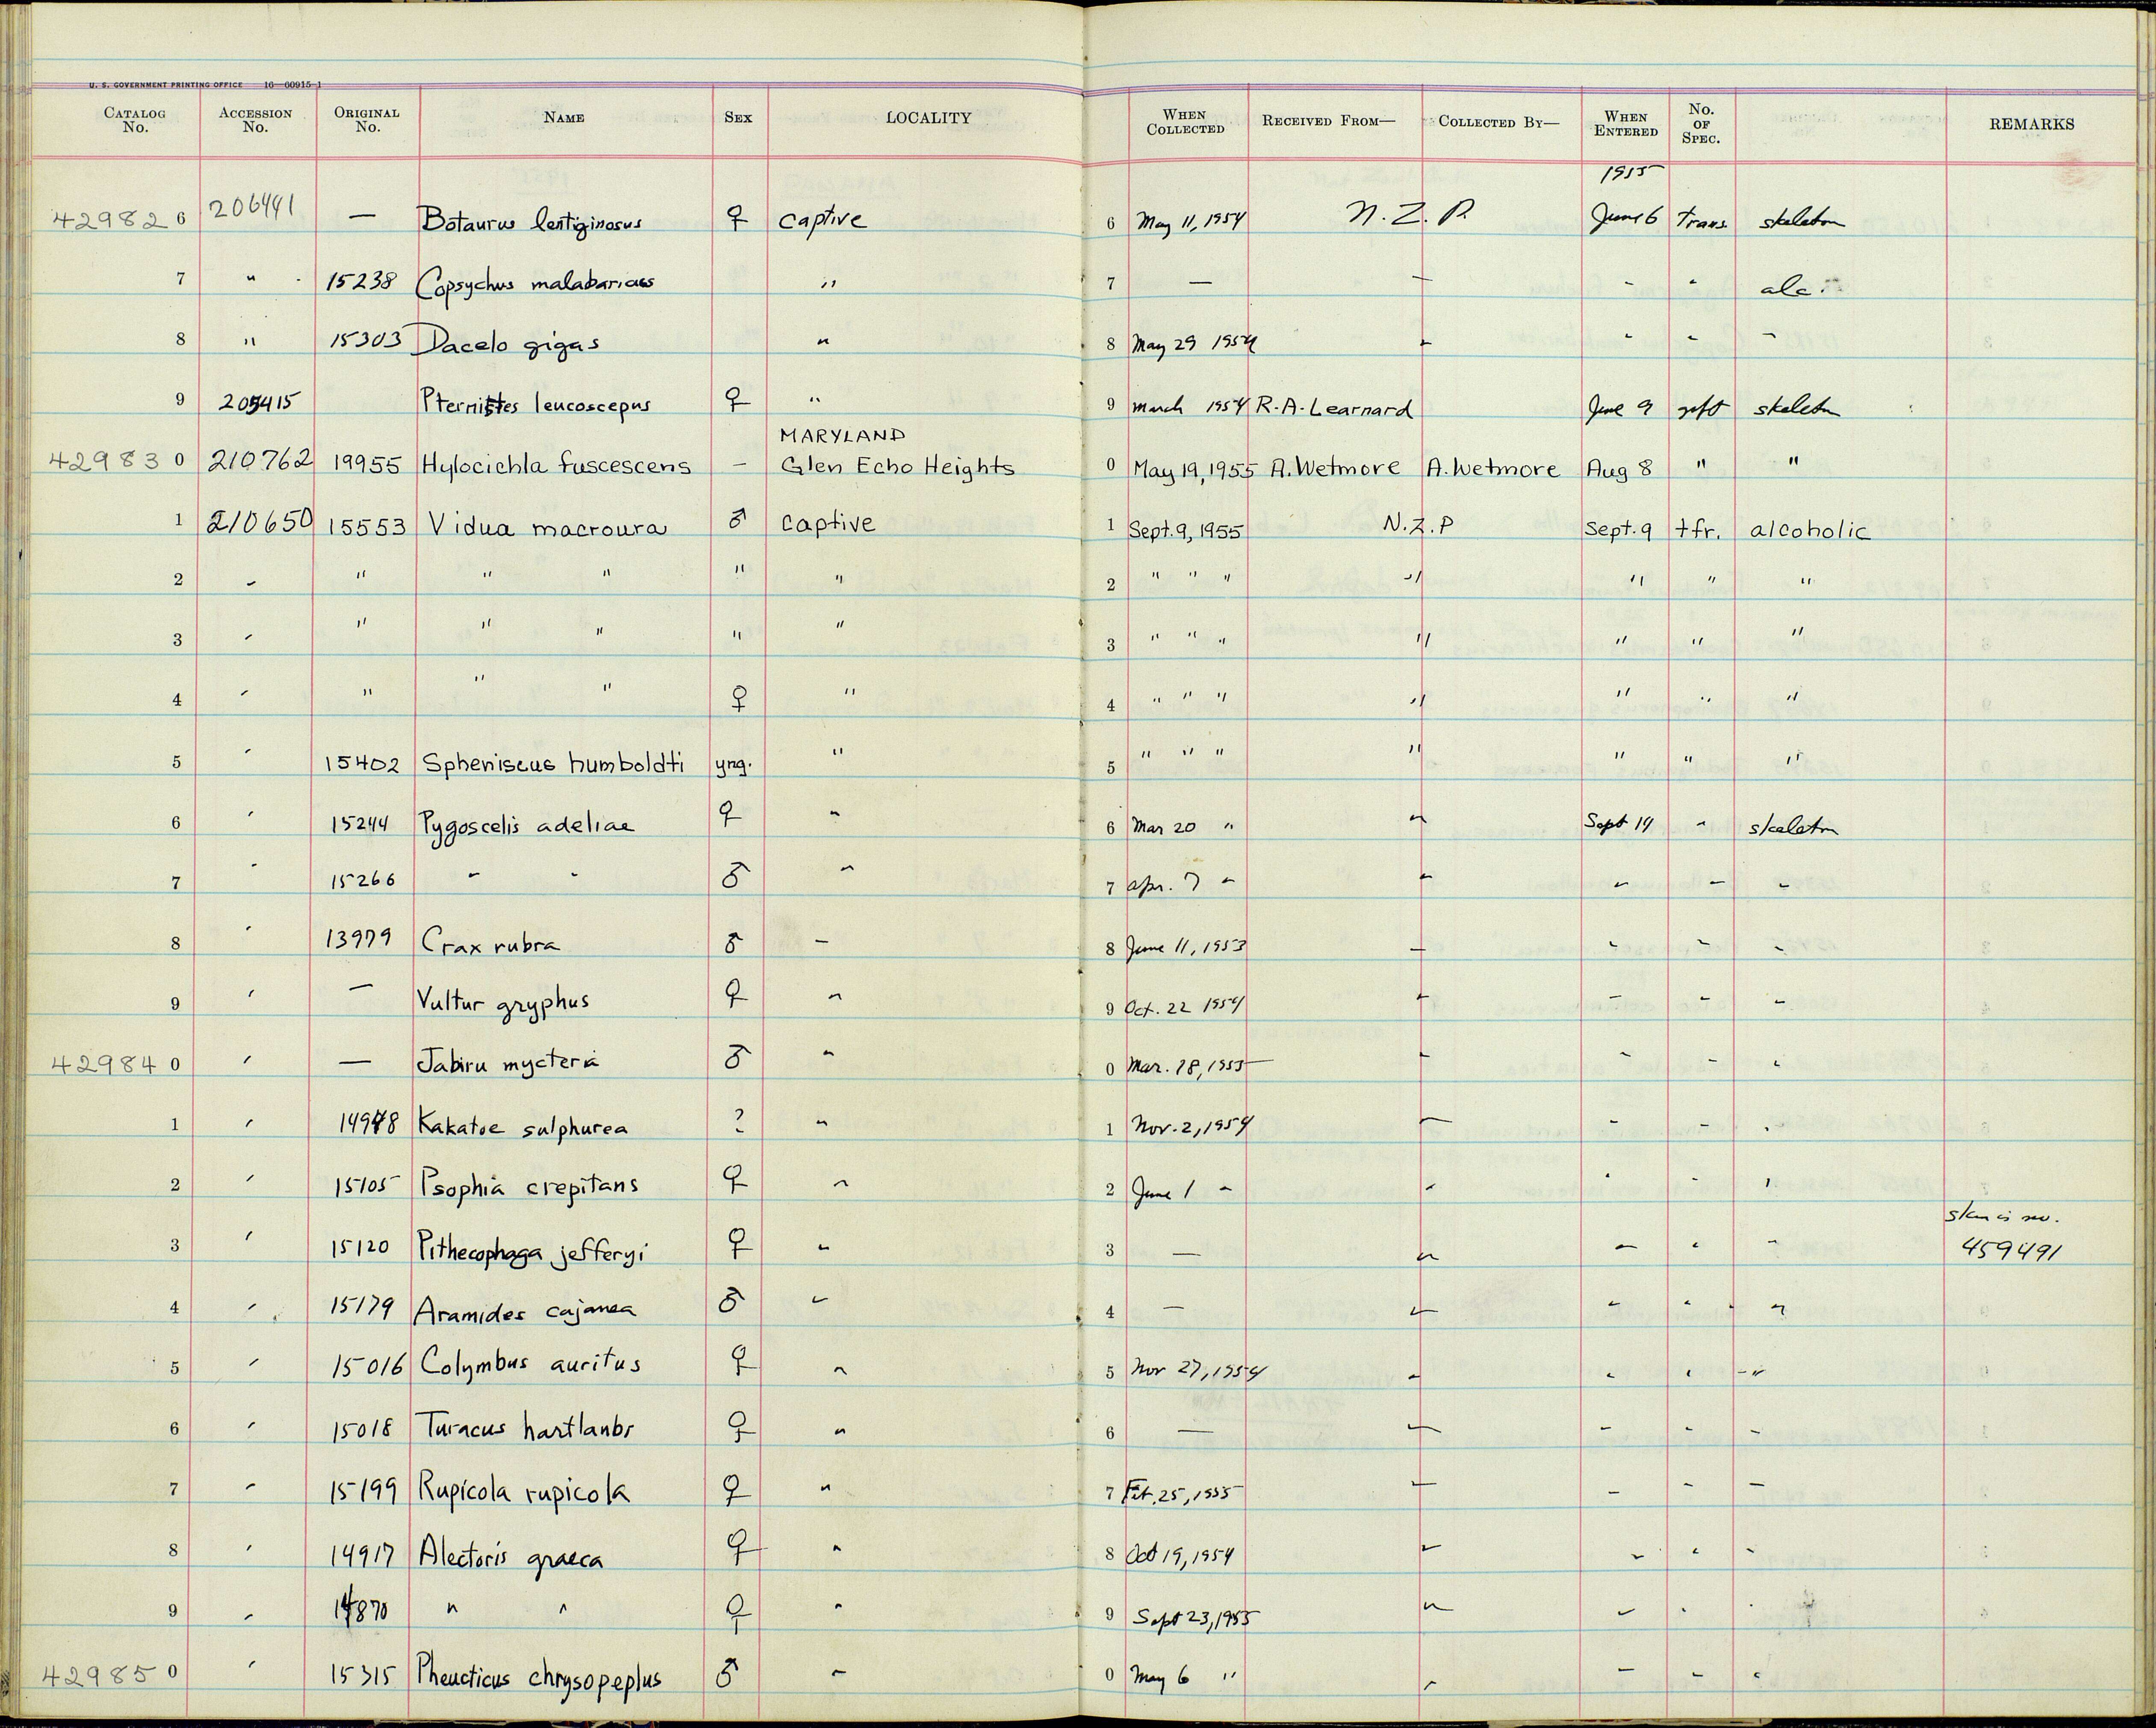 U. S. GOVERNMENT PRINTING OFFICE 16—60915-1
CATALOG No. ACCESSION No. ORIGINAL No. NAME SEX LOCALITY WHEN COLLECTED RECEIVED FROM— COLLECTED BY— WHEN ENTERED No. OF SPEC. REMARKS
1955
42982 6 206441 — Botaurus lentiginosus ♀ captive 6 May 11, 1954 N. Z. P. June 6 trans. skeleton
7 " 15238 Copsychus malabaricus " 7 — " " " alc.
8 " 15303 Dacelo gigas " 8 May 29 1954 " " " "
9 205415 Pternistes leucoscepus ♀ " 9 March 1954 R.A. Learnard June 9 gift skeleton
MARYLAND
42983 0 210762 19955 Hylocichla fuscescens — Glen Echo Heights 0 May 19, 1955 A. Wetmore A. Wetmore Aug 8 " "
1 210650 15553 Vidua macroura ♂ captive 1 Sept. 9, 1955 N.Z.P Sept. 9 tfr. alcoholic
2 " " " " " " 2 " " " " " " "
3 " " " " " " 3 " " " " " " "
4 " " " " ♀ " 4 " " " " " " "
5 " 15402 Spheniscus humboldti yng. " 5 " " " " " " "
6 " 15244 Pygoscelis adeliae ♀ " 6 Mar 20 " " Sept 14 " skeleton
7 " 15266 " " ♂ " 7 Apr. 7 " " " " "
8 " 13979 Crax rubra ♂ " 8 June 11, 1953 " " " "
9 " — Vultur gryphus ♀ " 9 Oct. 22 1954 " " " "
42984 0 " — Jabiru mycteria ♂ " 0 Mar. 28, 1955 " " " "
1 " 14978 Kakatoe sulphurea ? " 1 Nov. 2, 1954 " " " "
2 " 15105 Psophia crepitans ♀ " 2 June 1 " " " " "
skin is no.
3 " 15120 Pithecophaga jefferyi ♀ " 3 — " " " " 459491
4 " 15179 Aramides cajanea ♂ " 4 — " " " "
5 " 15016 Colymbus auritus ♀ " 5 Nov 27, 1954 " " " "
6 " 15018 Turacus hartlaubi ♀ " 6 — " " " "
7 " 15199 Rupicola rupicola ♀ " 7 Feb. 25, 1955 " " " "
8 " 14917 Alectoris graeca ♀ " 8 Oct 19, 1954 " " " "
9 " 14870 " " ♀ " 9 Sept 23, 1955 " " "
42985 0 " 15315 Pheucticus chrysopeplus ♂ " 0 May 6 " " " " "